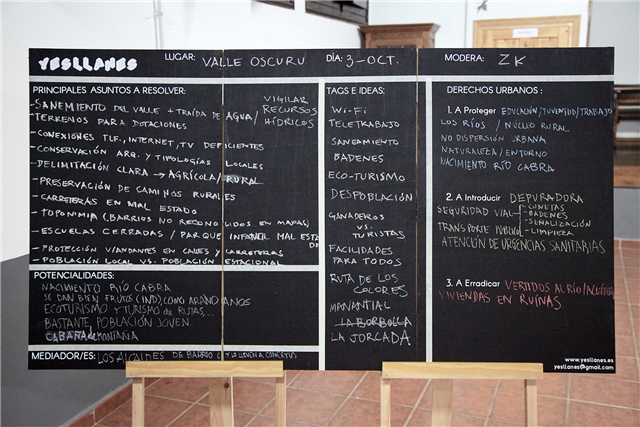 YESLLANES
LUGAR: VALLE OSCURU
DÍA: 3-OCT.
MODERA: ZK
PRINCIPALES ASUNTOS A RESOLVER:
-SANEMIENTO DEL VALLE + TRAÍDA DE AGUA/ VIGILAR RECURSOS HÍDRICOS
-TERRENOS PARA DOTACIONES
-CONEXIONES TLF., INTERNET, TV DEFICIENTES
-CONSERVACIÓN ARQ. Y TIPOLOGÍAS LOCALES
-DELIMITACIÓN CLARA → AGRÍCOLA/RURAL
-PRESERVACIÓN DE CAMINOS RURALES
-CARRETERAS EN MAL ESTADO
-TOPONIMIA (BARRIOS NO RECONOCIDOS EN MAPAS)
-ESCUELAS CERRADAS / PARQUE INFANTIL MAL ESTADO
-PROTECCIÓN VIANDANTES EN CALLES Y CARRETERAS
-POBLACIÓN LOCAL VS. POBLACIÓN ESTACIONAL
POTENCIALIDADES:
NACIMIENTO RÍO CABRA
SE DAN BIEN FRUTOS (IND), COMO ARANDANOS
ECOTURISMO Y TURISMO DE RUTAS,...
BASTANTE POBLACIÓN JOVEN
CABAÑA de MONTAÑA
MEDIADOR/ES: LOS ALCALDES DE BARRIO
TAGS E IDEAS:
Wi-Fi
TELETRABAJO
SANEAMIENTO
BADENES
ECO-TURISMO
DESPOBLACIÓN
GANADEROS
VS.
TURISTAS
FACILIDADES
PARA TODOS
RUTA DE LOS
COLORES
MANANTIAL
LA BORBOLLA
LA JORCADA
DERECHOS URBANOS:
1. A Proteger EDUCACIÓN/JUVENTUD/TRABAJO
LOS RÍOS / NÚCLEO RURAL
NO DISPERSIÓN URBANA
NATURALEZA/ENTORNO
NACIMIENTO RÍO CABRA
2. A Introducir DEPURADORA
SEGURIDAD VIAL
-CUNETAS
-BADENES
-SEÑALIZACIÓN
-LIMPIEZA
TRANSPORTE PÚBLICO
ATENCIÓN DE URGENCIAS SANITARIAS
3. A Erradicar VERTIDOS AL RÍO/
VIVIENDAS EN RUÍNAS
www.yesllanes.es
yesllanes@gmail.com